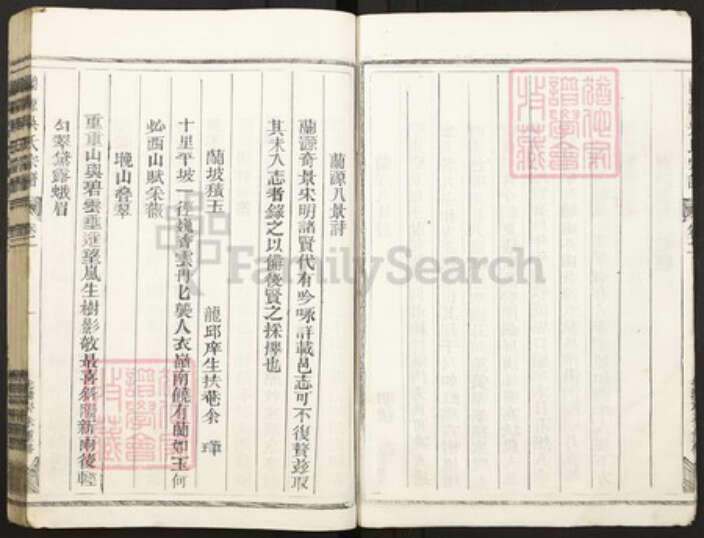 蘭源八景詩
蘭源奇景宋明諸賢代有吟咏詳載邑志可不復贅茲取
其未入志者錄之以備後賢之採擇也
蘭坡積玉
龍邱庠生扶菴余
十里平坡一徑 香雲冉冉襲人衣嶺南饒有蘭如玉何
必西山賦采薇
瓏山疊翠
重重山與碧雲 望嵐生樹影 最喜斜陽新雨後輕
勻翠黛露蛾眉
FamilySearch